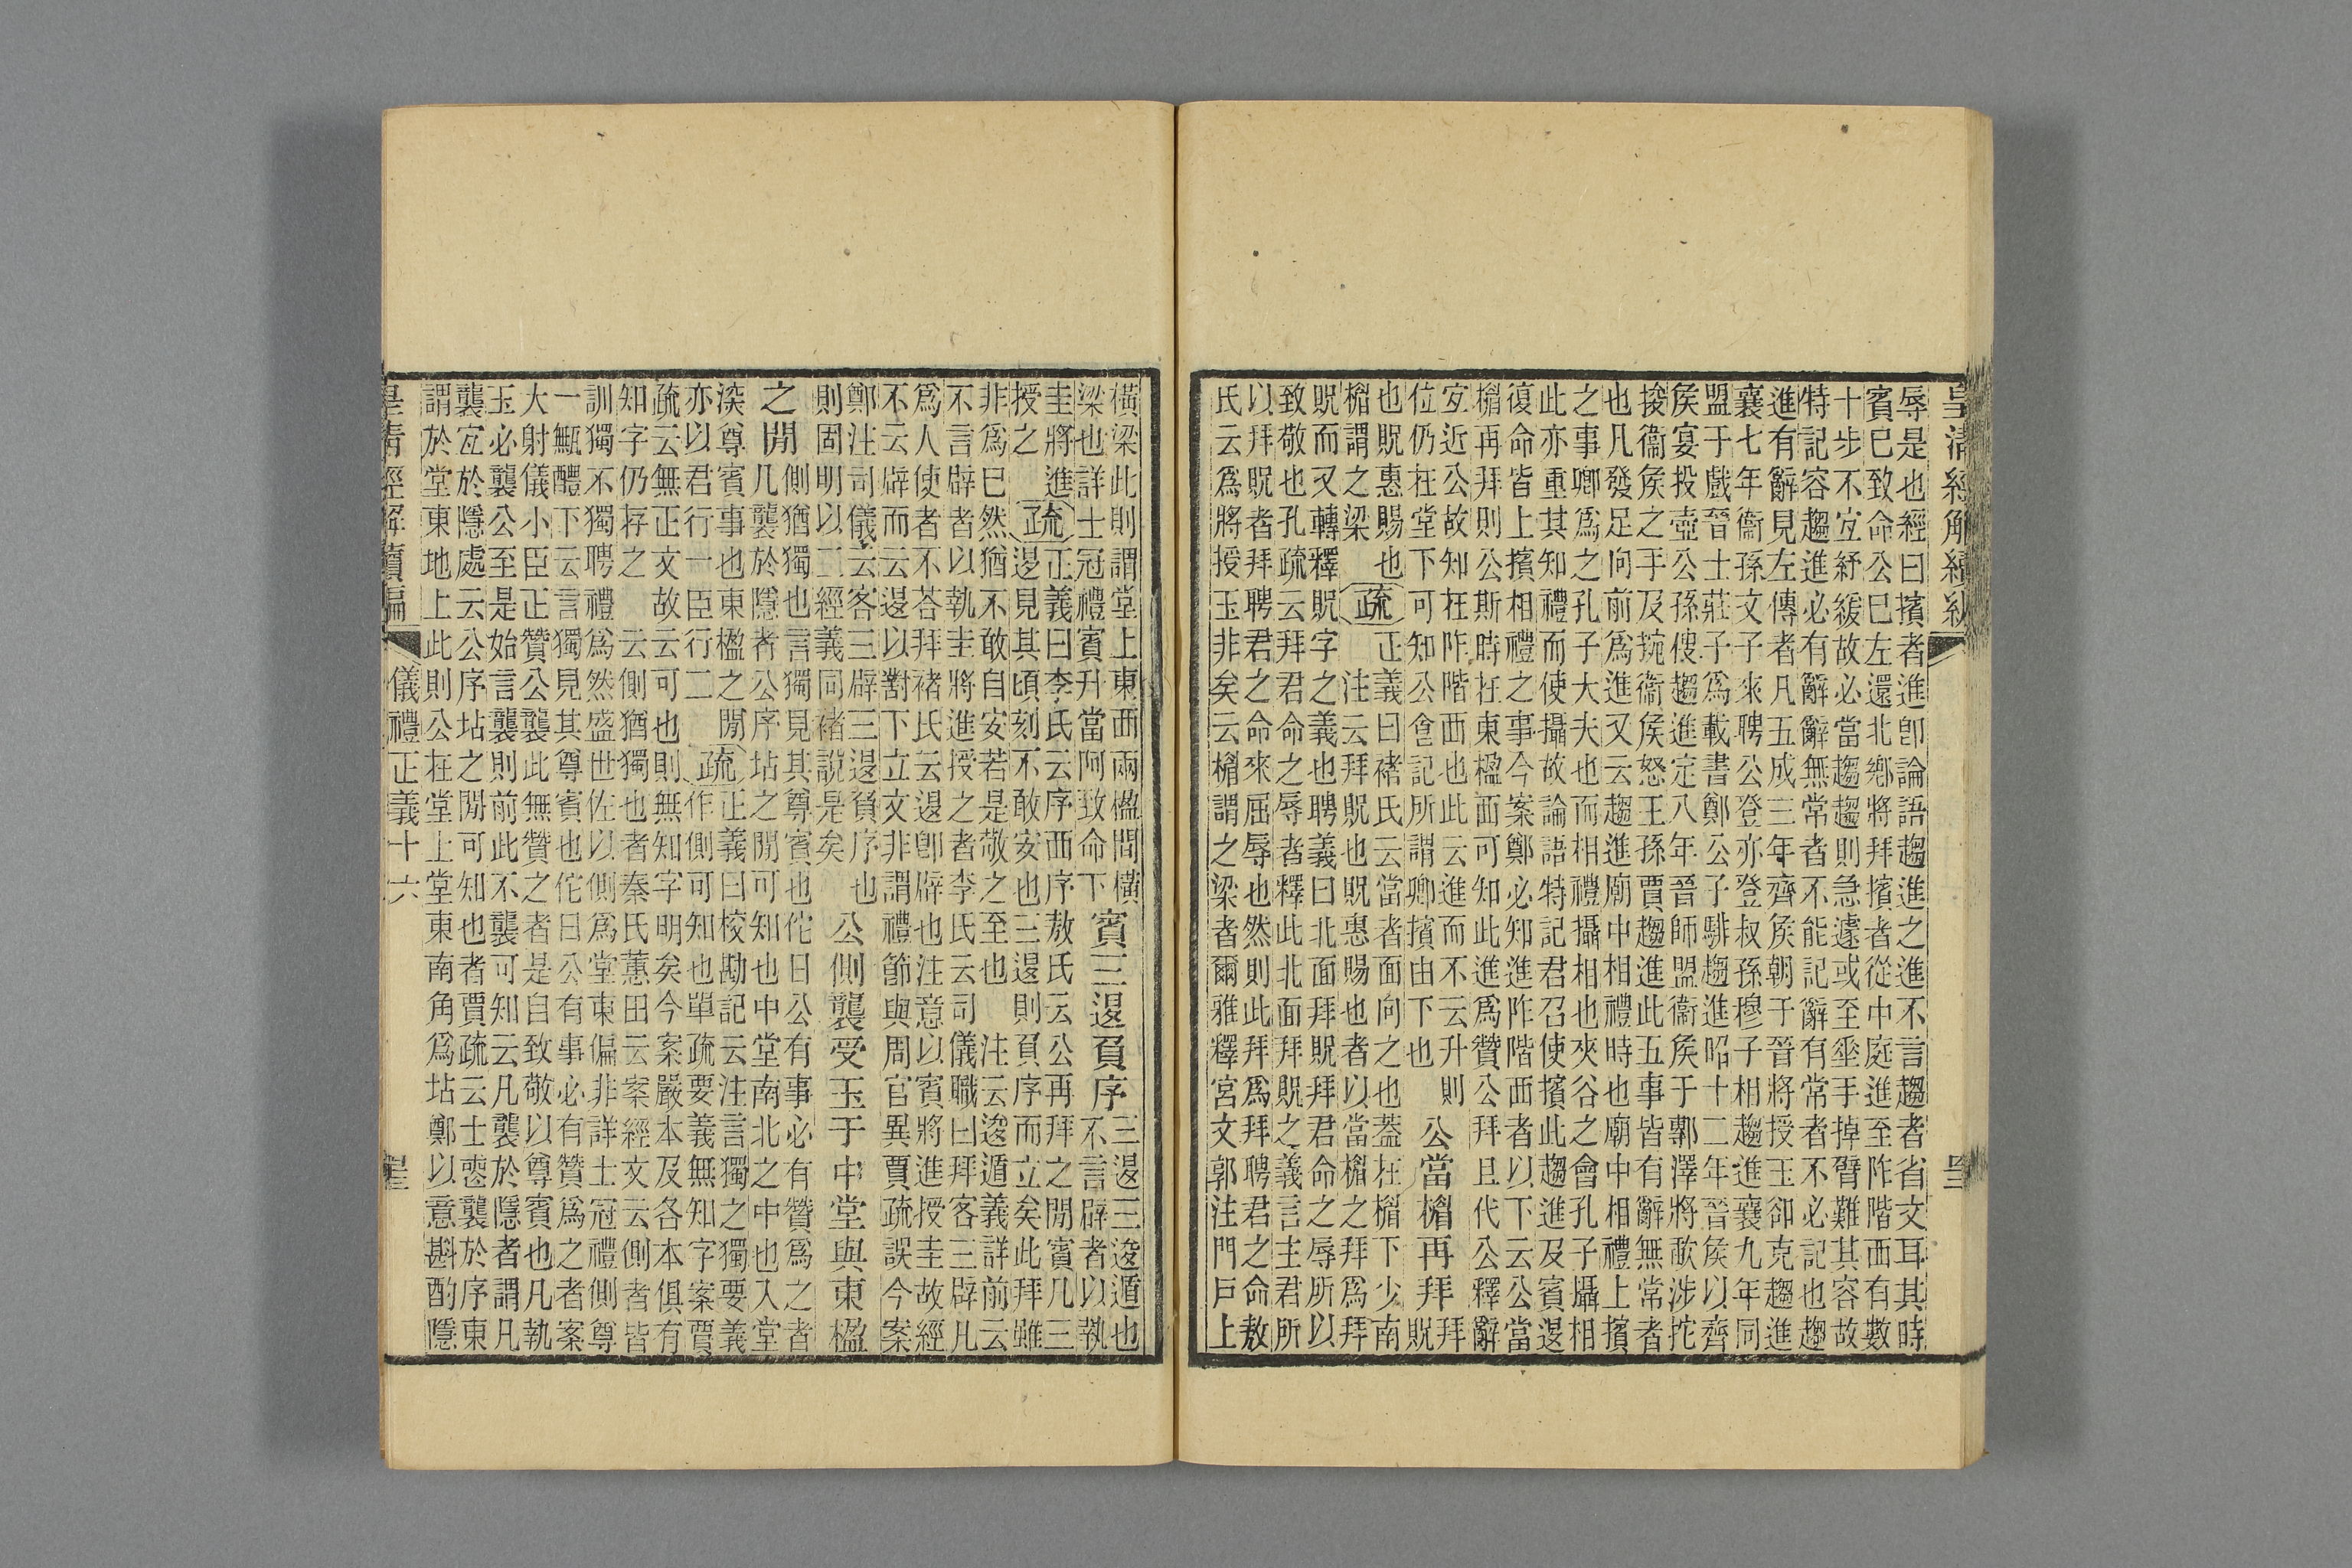 皇清經解續編
辱是也經曰擯者進卽論語趨進之進不言趨者省文耳其時
賓已致命公已左還北鄕將拜擯者從中庭進至阼階西有數
十步不宜紓緩故必當趨趨則急遽或至垂手掉臂難其容故
特記容趨進必有辭辭無常者不能記辭有常者不必記也趨
進有辭見左傳者凡五成三年齊矦朝于晉將授玉卻克趨進
襄七年衞孫文子來聘公登亦登叔孫穆子相趨進襄九年同
盟于戲晉士莊子爲載書鄭公子騑趨進昭十二年晉矦以齊
矦宴投壺公孫傁趨進定八年晉師盟衞矦于鄟澤將歃涉佗
捘衞矦之手及捥衞矦怒王孫賈趨進此五事皆有辭無常者
也凡發足向前爲進又云趨進廟中相禮時也廟中相禮上擯
之事卿爲之孔子大夫也而相禮攝相也夾谷之會孔子攝相
此亦重其知禮而使攝故論語特記君召使擯此趨進及賓退
復命皆上擯相禮之事今案鄭必知進阼階西者以下云公當
楣再拜則公斯時在東楹面可知此進爲贊公拜且代公釋辭
宜近公故知在阼階西也此云進而不云升則
位仍在堂下可知公食記所謂卿擯由下也
公當楣再拜
拜貺
也貺惠賜也 疏 正義曰褚氏云當者面向之也蓋在楣下少南
楣謂之梁 注云拜貺也貺惠賜也者以當楣之拜爲拜
貺而又轉釋貺字之義也聘義曰北面拜貺拜君命之辱所以
致敬也孔疏云拜君命之辱者釋此北面拜貺之義言主君所
以拜貺者拜聘君之命來屈辱也然則此拜爲拜聘君之命敖
氏云爲將授玉非矣云楣謂之梁者爾雅釋宮文郭注門戶上
橫梁此則謂堂上東西兩楹閒橫
梁也詳士冠禮賓升當阿致命下
賓三退負序
三退三逡遁也
不言辟者以執
圭將進 疏 正義曰李氏云序西序敖氏云公再拜之閒賓凡三
授之 退見其頃刻不敢安也三退則負序而立矣此拜雖
非爲已然猶不敢自安若是敬之至也 注云逡遁義詳前云
不言辟者以執圭將進授之者李氏云司儀職曰拜客三辟凡
爲人使者不荅拜褚氏云退卽辟也注意以賓將進授圭故經
不云辟而云退以對下立文非謂禮節與周官異賈疏誤今案
鄭注司儀云客三辟三退負序也
則固明以二經義同褚說是矣
公側襲受玉于中堂與東楹
之閒
側猶獨也言獨見其尊賓也佗日公有事必有贊爲之者
凡襲於隱者公序坫之閒可知也中堂南北之中也入堂
深尊賓事也東楹之閒 疏 正義曰校勘記云注言獨之獨要義
亦以君行一臣行二 作側可知也單疏要義無知字案賈
疏云無正文故云可也則無知字明矣今案嚴本及各本俱有
知字仍存之 云側猶獨也者秦氏蕙田云案經文云側者皆
訓獨不獨聘禮爲然盛世佐以側爲堂東偏非詳士冠禮側尊
一甒醴下云言獨見其尊賓也佗日公有事必有贊爲之者案
大射儀小臣正贊公襲此無贊之者是自致敬以尊賓也凡執
玉必襲公至是始言襲則前此不襲可知云凡襲於隱者謂凡
襲宜於隱處云公序坫之閒可知也者賈疏云士喪襲於序東
謂於堂東地上此則公在堂上堂東南角爲坫鄭以意斟酌隱
皇清經解續編 儀禮正義十六